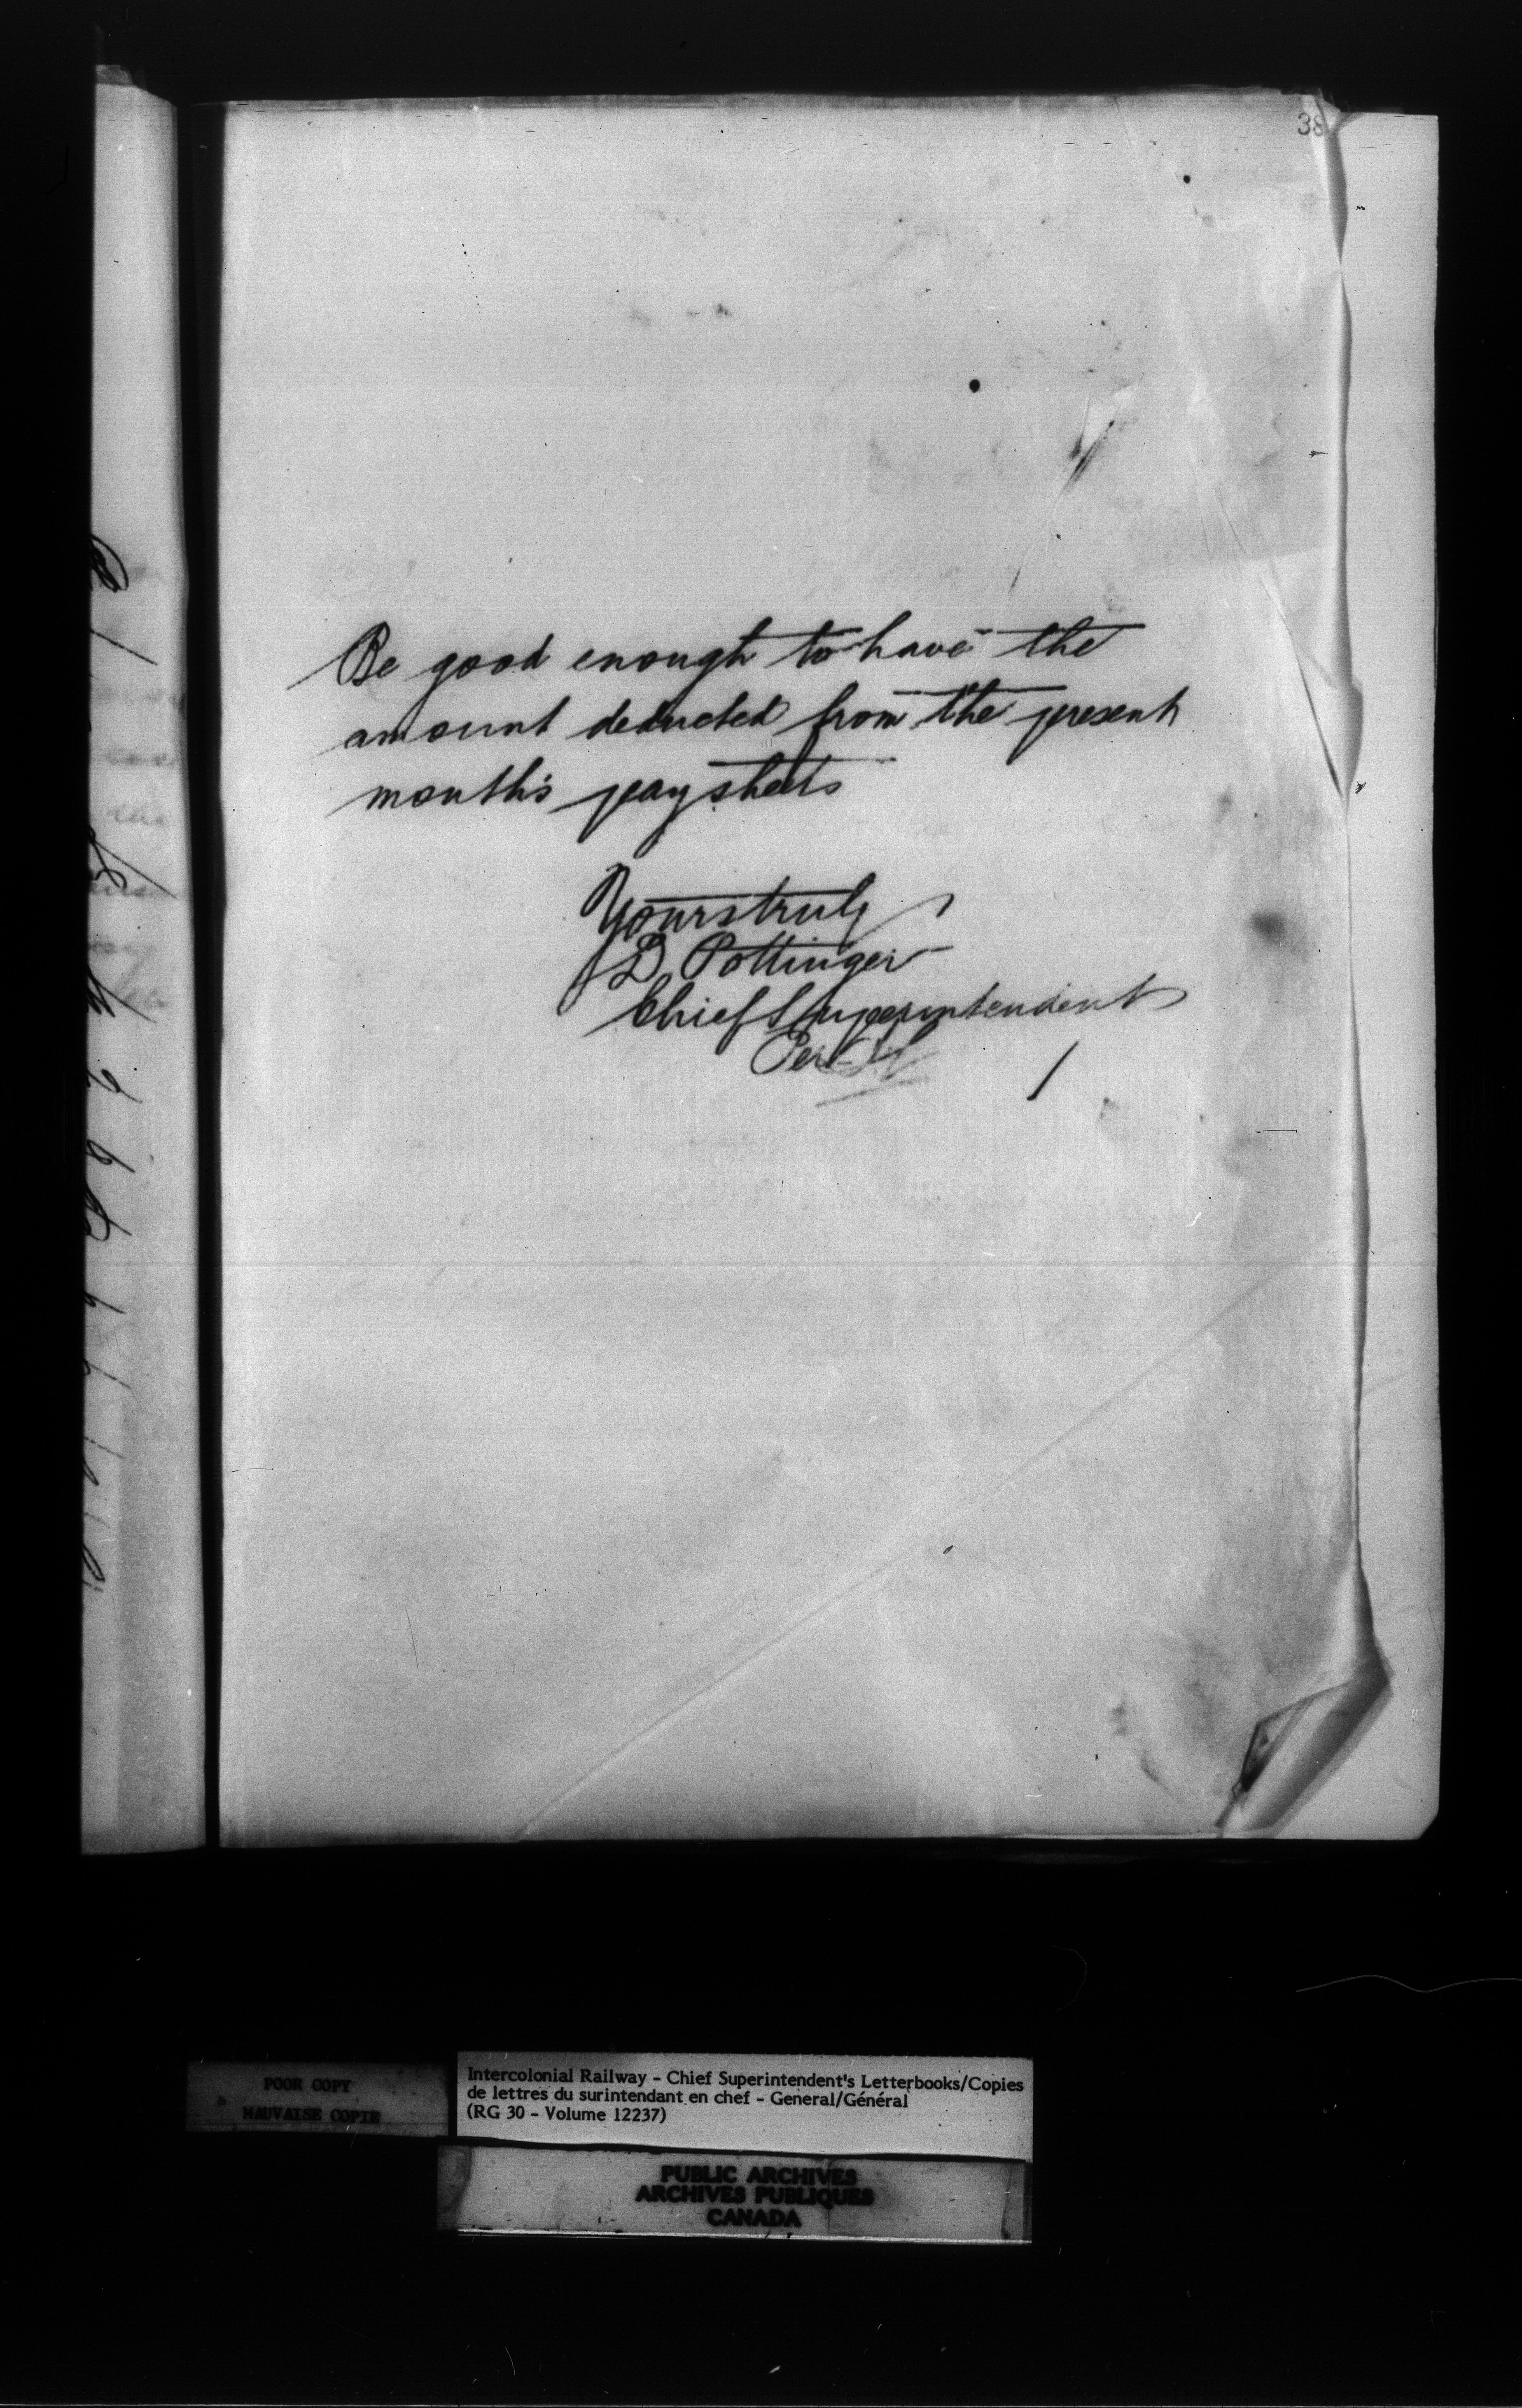 38
Be good enough to have the
amount deducted from the present
month's pay sheets
Yours truly
D Pottinger
Chief Superintendent
Per
POOR COPY
MAUVAISE COPIE
Intercolonial Railway - Chief Superintendent's Letterbooks/Copies
de lettres du surintendant en chef - General/Général
(RG 30 - Volume 12237)
PUBLIC ARCHIVES
ARCHIVES PUBLIQUES
CANADA